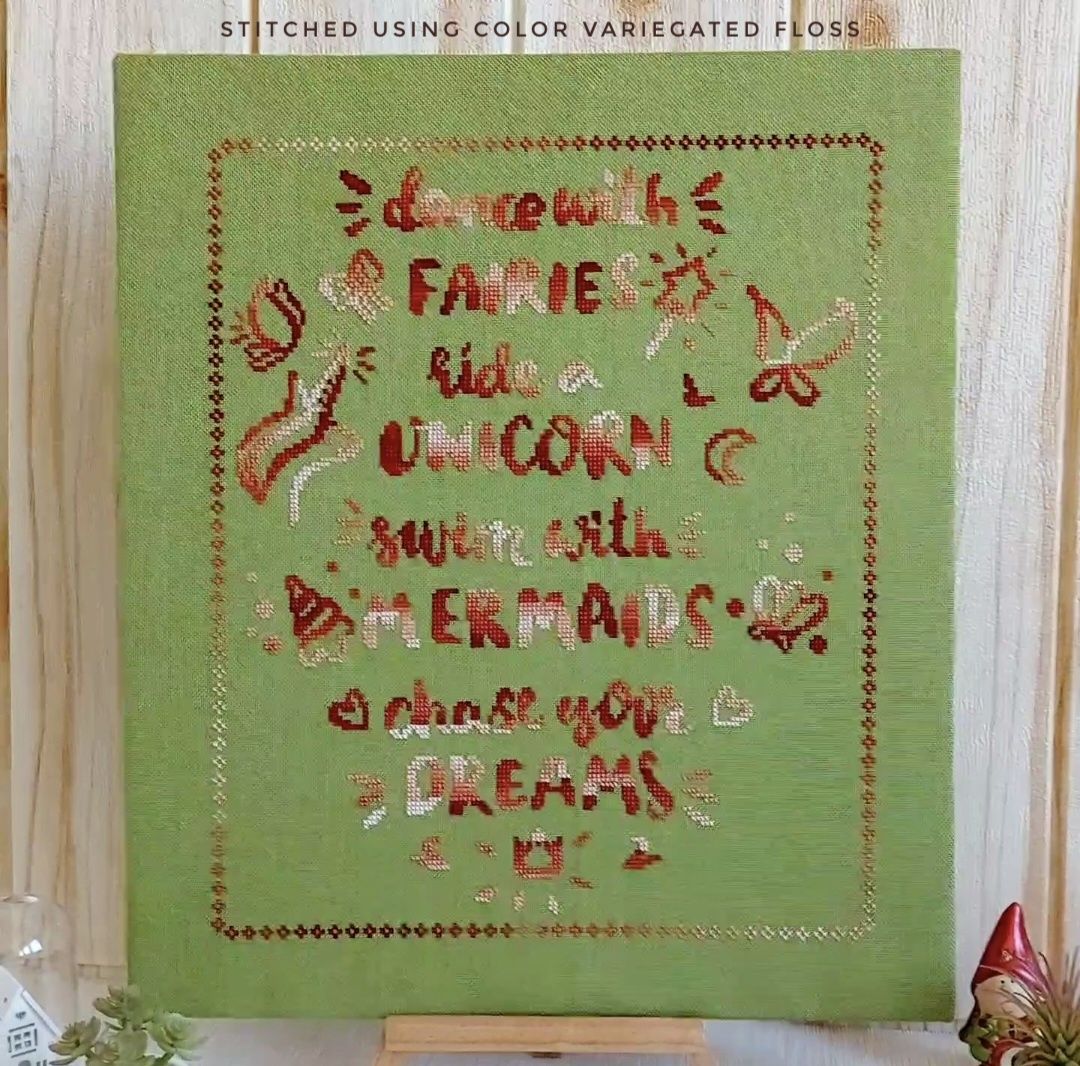 STITCHED USING COLOR VARIEGATED FLOSS
dance with
FAIRIES
ride a
UNICORN
swim with
MERMAIDS
chase your
DREAMS